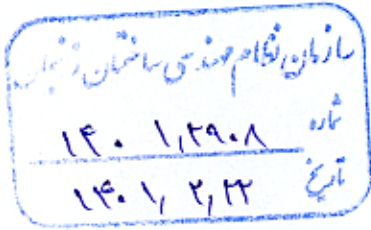 سازمان نظام مهندسی ساختمان زنجان
شماره ۱۴۰۱,۲۹۰۸
تاریخ ۱۴۰۱,۲,۲۲